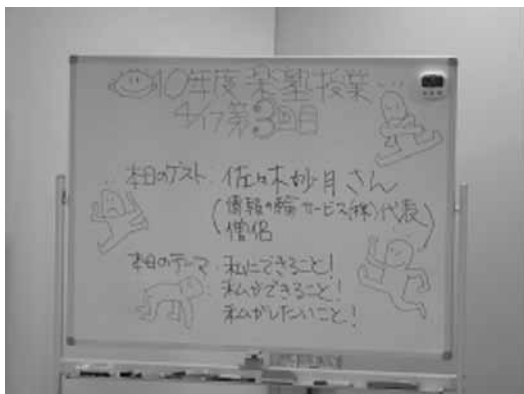 10年度楽塾授業
4/17第3回目
本日のゲスト 佐々木妙月さん
(情報の輪サービス(株)代表)
僧侶
本日のテーマ 私にできること!
私ができること!
私がしたいこと!